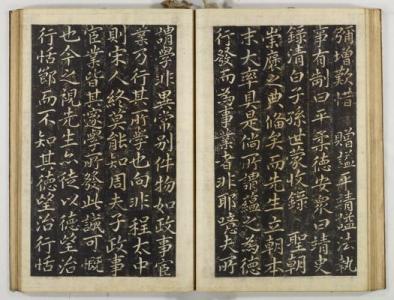 彌增歎惜 贈諡平靖諡法執
事有制曰平秉德安衆曰靖史
錄清白子孫世家收錄 聖朝
崇之典備矣而先生立朝本
末大率具是倘所謂蘊之為德
行發而為事業者非耶噫夫所
謂學非異常別件物如政事宦
業方行其所學也向非程太中
則宋人終莫能知周夫子政事
宦業皆其學所發此誠可慨
也今之視先生亦徒以德望治
行恬節而不知其德望治行恬